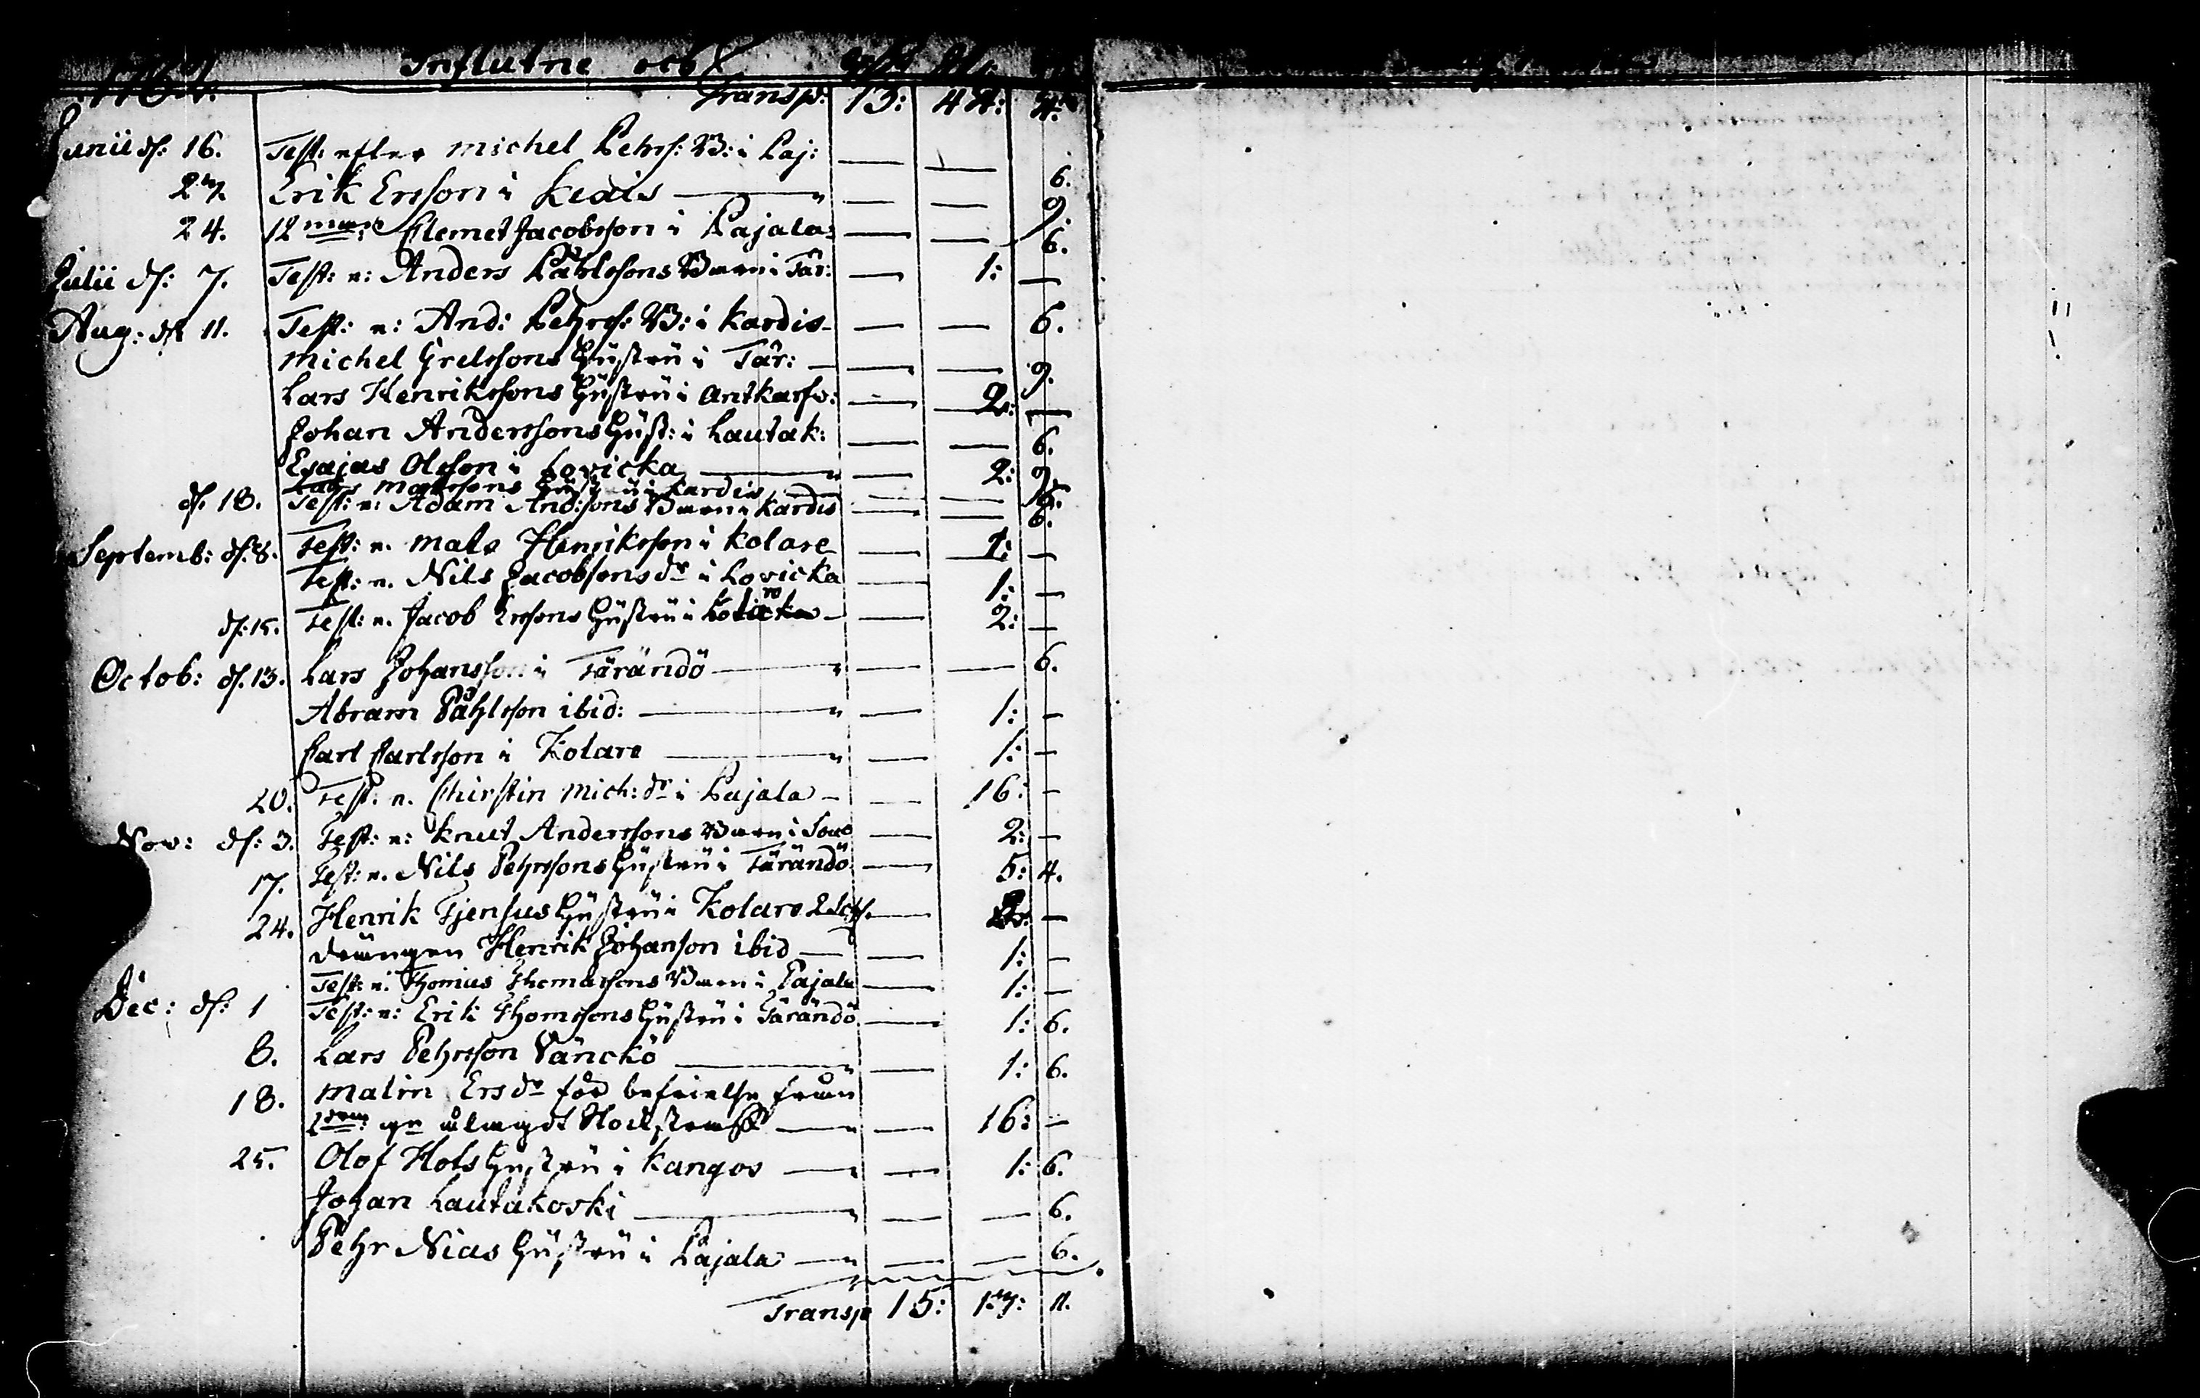 1762. Influtne och
Transp: 13: 44: 4.
Junii d: 16. Test: efter Michel Pehrs: B: i Paj: — — 6.
27. Erik Ersson i Kieais — — 9.
24. 12 Clemet Jacobsson i Pajala: — — 6.
Julii d: 7. Test: e: Anders Påhlssons Barn i Tär: — 1: —
Aug: d: 11. Test: e: And: Pehrs: B: i Kardis — — 6.
Michel Grelssons Hustru i Tär: — — 9.
Lars Henrikssons Hustru i Antkarfv: — 2: —
Johan Anderssons Hust: i Lautak: — — 6.
Esajas Olsson i Lovicka — 2: 9.
Matssons Hustru i Kardis — —
d. 18. Test: e: Adam And:sons Barn i Kardis — — 6.
Septemb: d: 8. Test: e. Mats Henriksson i Kolare — 1: —
Test: e. Nils Jacobsons dr i Lovicka — 1: —
d: 15. Test: e. Jacob Erssons Hustru i — 2: —
Octob: d. 13. Lars Johansson i Tärändö — — 6.
Abram Påhlsson ibid: — 1: —
Carl Carlsson i Kolare — 1: —
20. Test: e. Chirstin Mich: dr i Pajala — 16: —
Nov: d: 3. Test: e: Knut Anderssons Barn i — 2: —
17. Test: e. Nils Pehrssons Hustru i Tärändö — 5: 4.
24. Henrik Fjensus Hustru i Kolare — —
drängen Henrik Johanson ibid — 1: —
Test: e. Thomas Thomassons Barn i Pajala — 1: —
Dec: d: 1 Test: e: Erik Thomssons Hustru i Tärändö — 1: 6.
8. Lars Pehrsson Vänckö — 1: 6.
18. Malin Ersdr för befrielse från
ålagdt Stockstraff — 16: —
25. Olof Hols Hustru i Kangos — 1: 6.
Johan Lautakoski — — 6.
Pehr Nias Hustru i Pajala — — 6.
Transp 15: 17: 11.